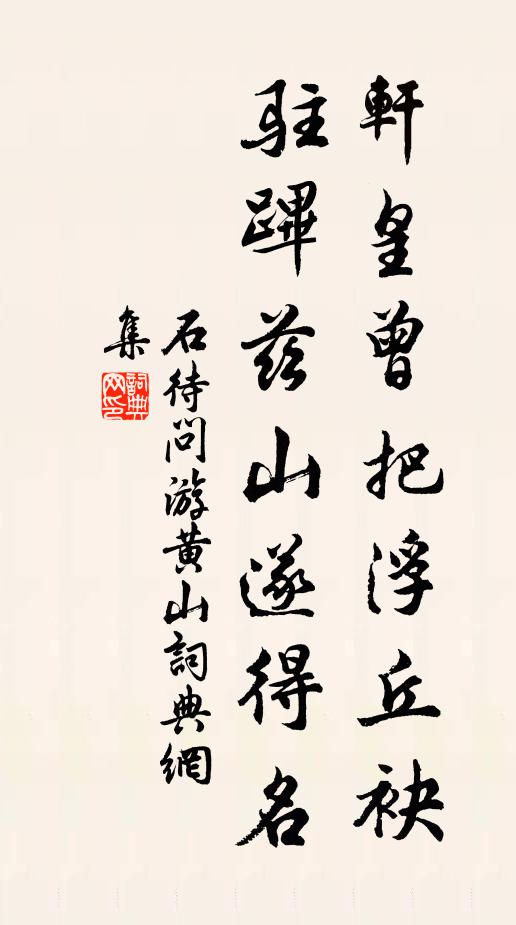 軒皇曾把浮丘袂
駐蹕茲山遂得名
石待問游黃山詞典網
集
詞典網印